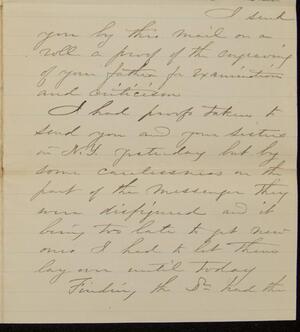 I send
you by this mail on a
roll a proof of the engraving
of your father for examination
and criticism
I had proofs taken to
send you and your sisters
in N.Y. yesterday but by
some carelessness on the
part of the messenger they
were disfigured and it
being too late to get new
ones I had to let them
lay over until today
Finding the Dr. had the